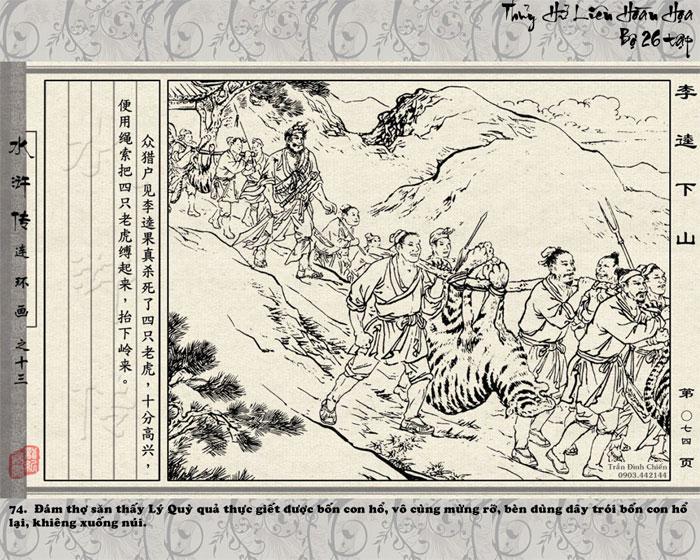 Thủy Hử Liên Hoàn Họa
Bộ 26 tập
李逵下山
第〇七四页
众猎户见李逵果真杀死了四只老虎，十分高兴，
便用绳索把四只老虎缚起来，抬下岭来。
水浒传连环画之十三
水浒传
Trần Đình Chiến
0903.442144
74. Đám thợ săn thấy Lý Quỳ quả thực giết được bốn con hổ, vô cùng mừng rỡ, bèn dùng dây trói bốn con hổ
lại, khiêng xuống núi.